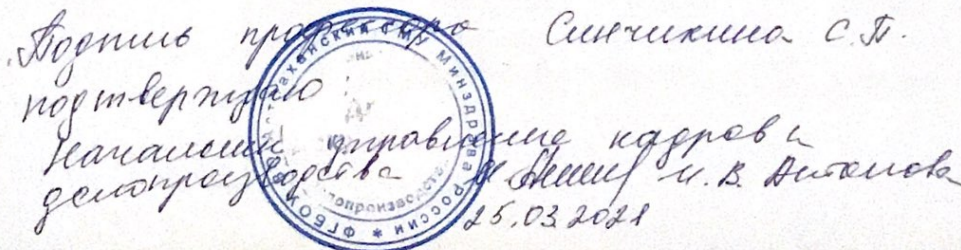 Подпись профессора Синчихина С.П.
подтверждаю:
Начальник управление кадров и
делопроизводства И.В. Антонова
25.03.2021
ФГБОУ ВО Астраханский ГМУ Минздрава России *